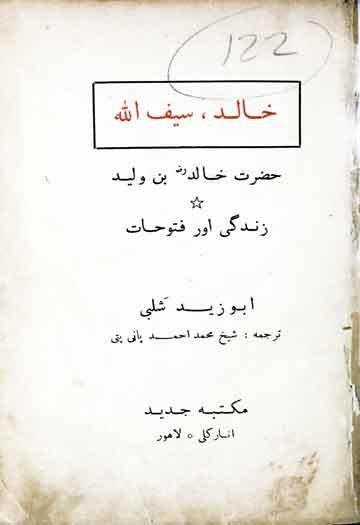 122
خالد، سیف اللہ
حضرت خالدؓ بن ولید
☆
زندگی اور فتوحات
ابو زید شلبی
ترجمہ : شیخ محمد احمد پانی پتی
مکتبہ جدید
انارکلی ○ لاہور